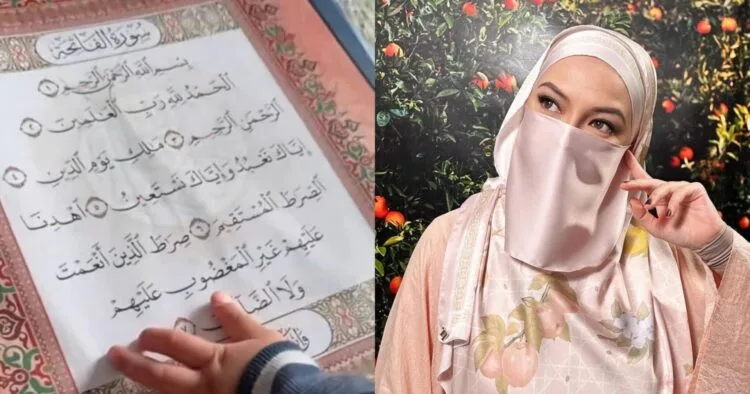 سُورَةُ الفَاتِحَةِ
بِسْمِ ٱللَّهِ ٱلرَّحْمَٰنِ ٱلرَّحِيمِ ١
ٱلْحَمْدُ لِلَّهِ رَبِّ ٱلْعَٰلَمِينَ ٢
ٱلرَّحْمَٰنِ ٱلرَّحِيمِ ٣ مَٰلِكِ يَوْمِ ٱلدِّينِ ٤
إِيَّاكَ نَعْبُدُ وَإِيَّاكَ نَسْتَعِينُ ٥ ٱهْدِنَا
ٱلصِّرَٰطَ ٱلْمُسْتَقِيمَ ٦ صِرَٰطَ ٱلَّذِينَ أَنْعَمْتَ
عَلَيْهِمْ غَيْرِ ٱلْمَغْضُوبِ عَلَيْهِمْ
وَلَا